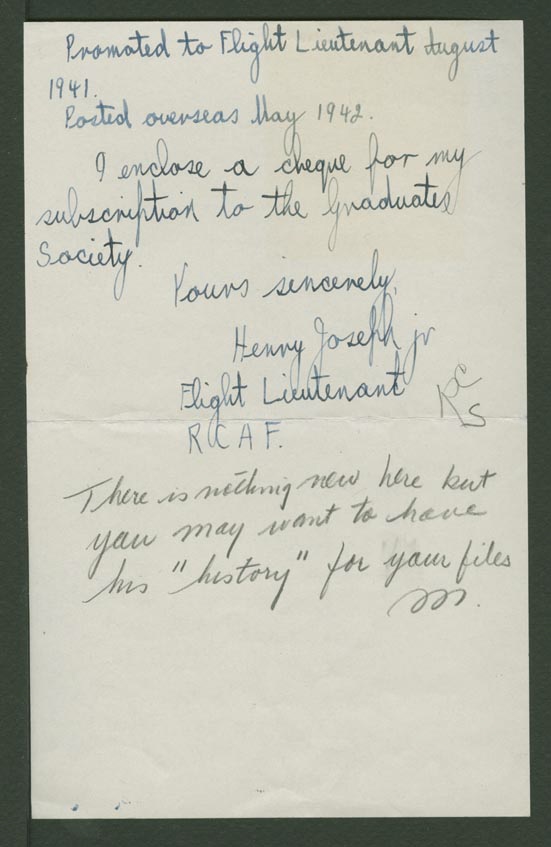 Promoted to Flight Lieutenant August
1941.
Posted overseas May 1942.
I enclose a cheque for my
subscription to the Graduates
Society.
Yours sincerely,
Henry Joseph jr
Flight Lieutenant
R C A F.
There is nothing new here but
you may want to have
his "history" for your files
M.